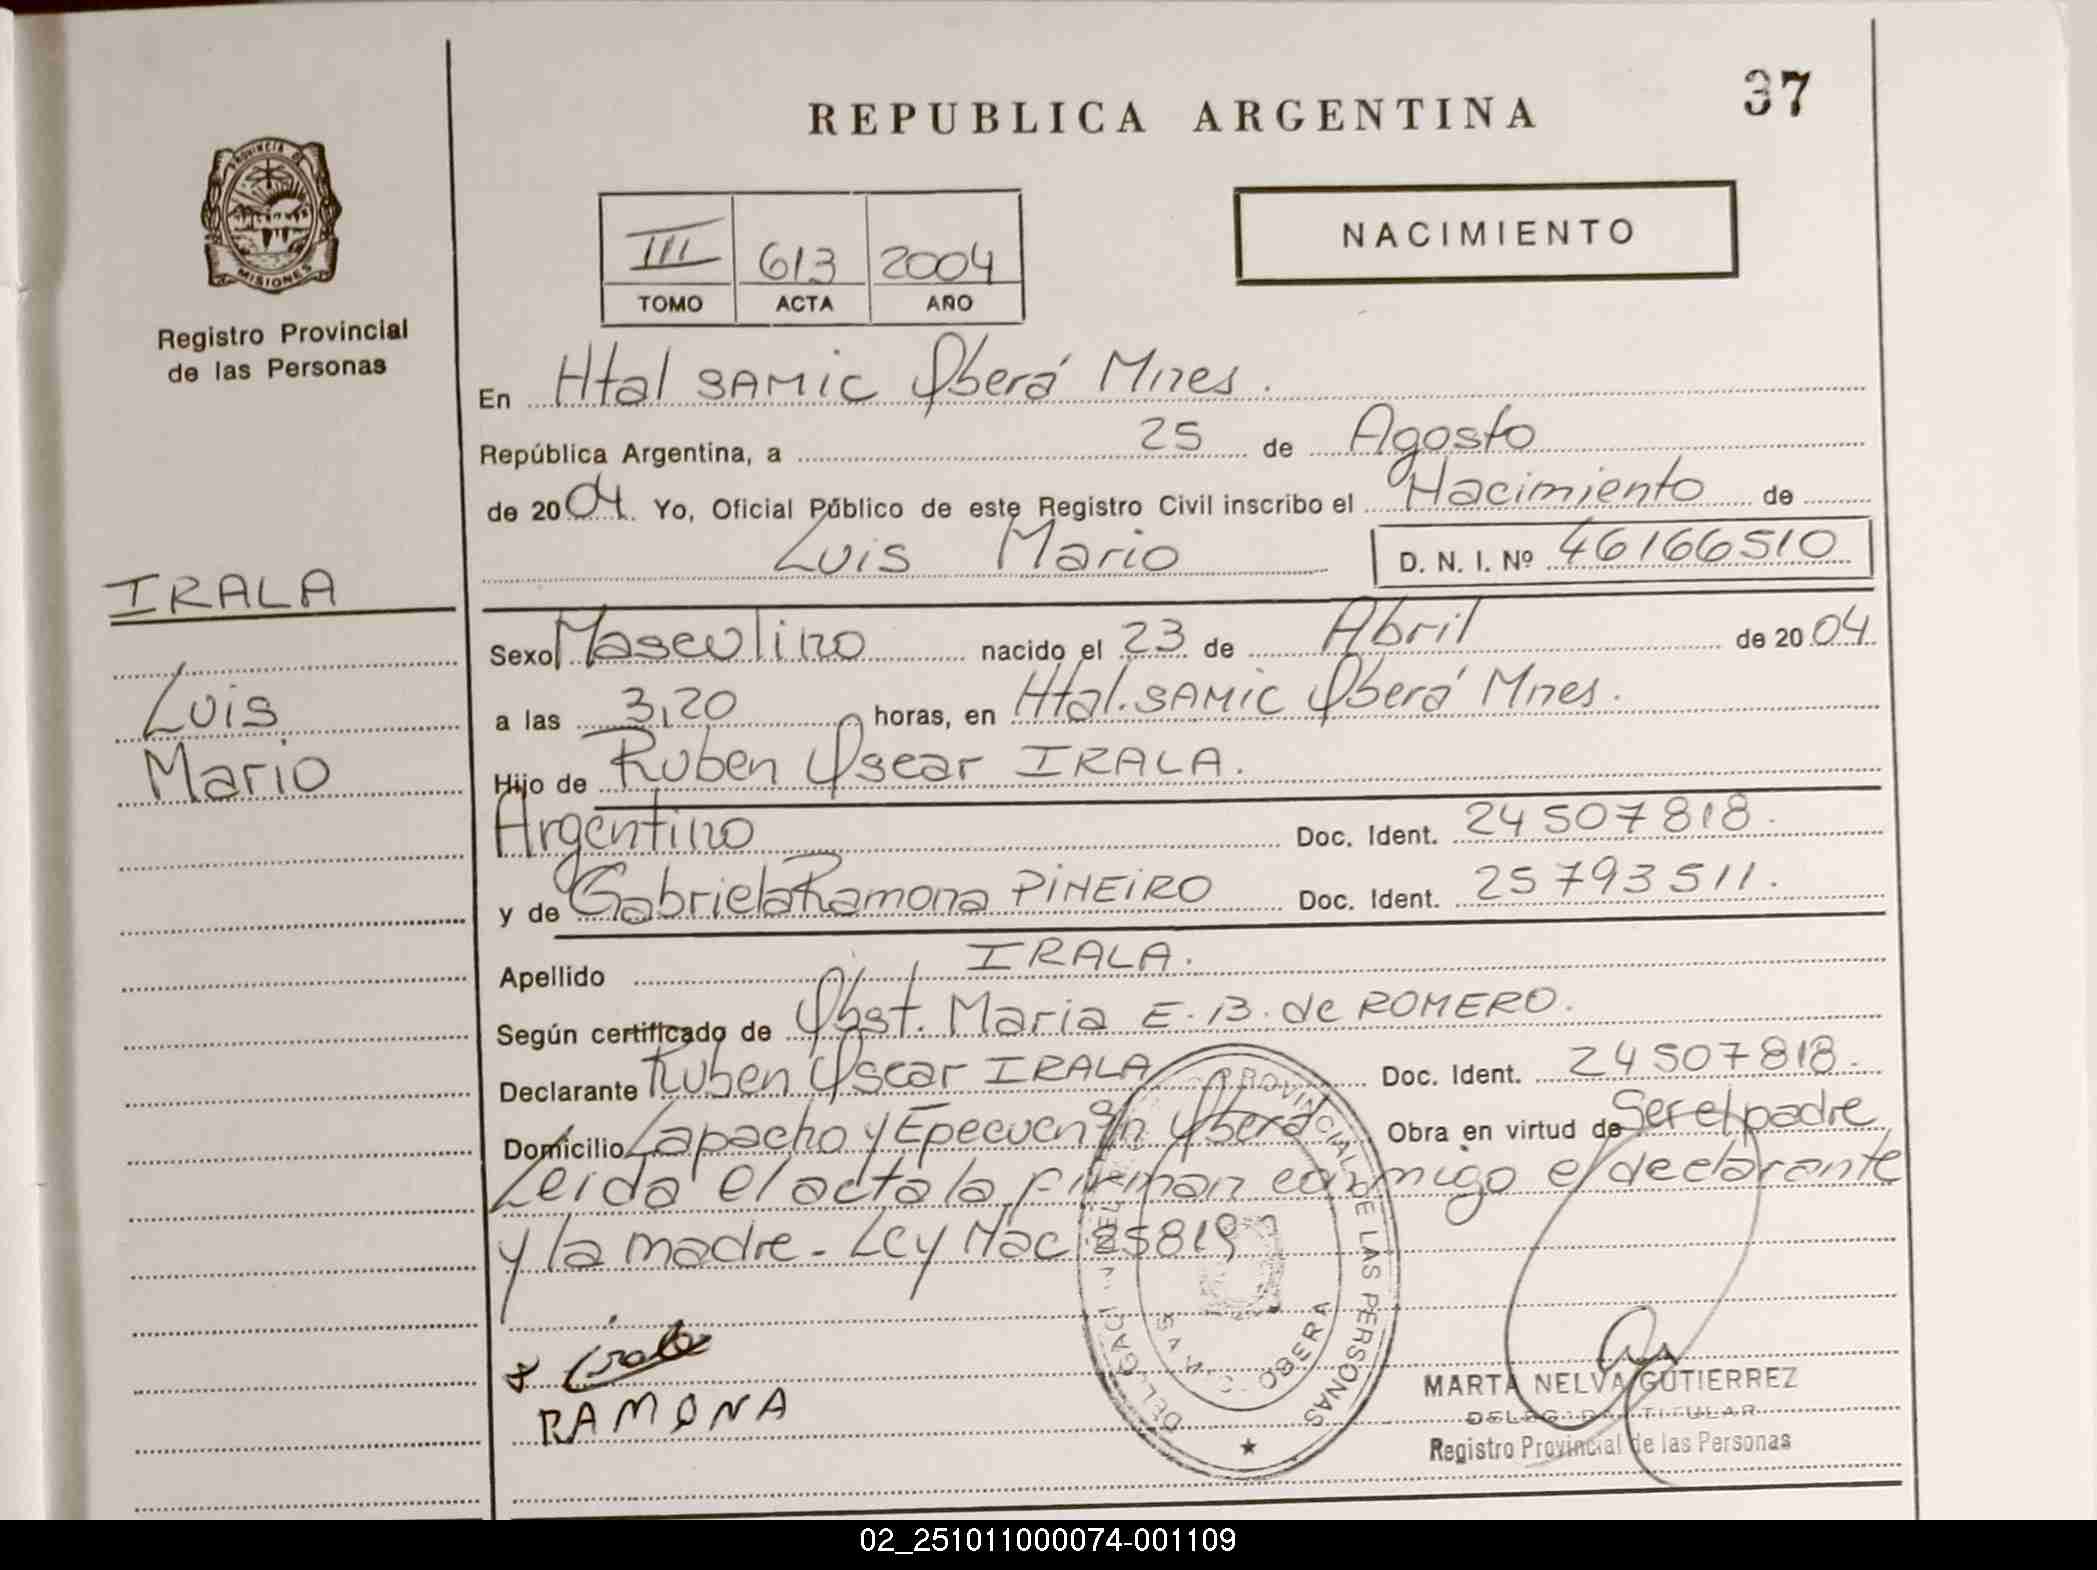 REPUBLICA ARGENTINA
37
PROVINCIA DE
MISIONES
Registro Provincial
de las Personas
III 613 2004
TOMO ACTA AÑO
NACIMIENTO
En Htal SAMIC Oberá Mnes.
República Argentina, a 25 de Agosto
de 2004. Yo, Oficial Público de este Registro Civil inscribo el Nacimiento de
Luis Mario
D. N. I. Nº 46166510
IRALA
Luis
Mario
Sexo Masculino nacido el 23 de Abril de 2004
a las 3,20 horas, en Htal. SAMIC Oberá Mnes.
Hijo de Ruben Oscar IRALA.
Argentino Doc. Ident. 24507818.
y de Gabriela Ramona PIÑEIRO Doc. Ident. 25793511.
Apellido IRALA.
Según certificado de Obst. Maria E. B. de ROMERO.
Declarante Ruben Oscar IRALA Doc. Ident. 24507818.
Domicilio Lapacho y Epecuen Oberá Obra en virtud de Ser el padre
Leida el acta la firman conmigo el declarante
y la madre. Ley Nac 25819
Irala
RAMONA
PROVINCIAL DE LAS PERSONAS
OBERA
MARTA NELVA GUTIERREZ
DELEGADA TITULAR
Registro Provincial de las Personas
02_251011000074-001109